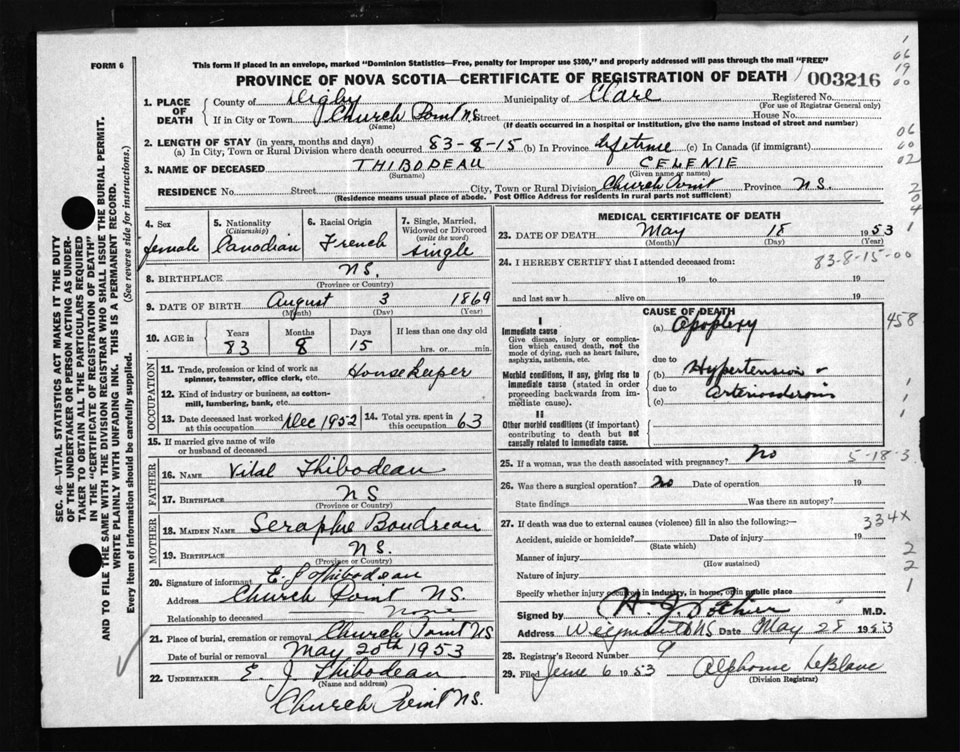 FORM 6
This form if placed in an envelope, marked "Dominion Statistics—Free, penalty for improper use $300," and properly addressed will pass through the mail "FREE"
PROVINCE OF NOVA SCOTIA—CERTIFICATE OF REGISTRATION OF DEATH 003216
1
06
19
00
1. PLACE OF DEATH County of Digby Municipality of Clare Registered No.
(For use of Registrar General only)
If in City or Town Church Point N.S. Street House No.
(Name) (If death occurred in a hospital or institution, give the name instead of street and number)
2. LENGTH OF STAY (in years, months and days)
(a) In City, Town or Rural Division where death occurred 83-8-15 (b) In Province lifetime (c) In Canada (if immigrant)
06
00
02
3. NAME OF DECEASED THIBODEAU CELENIE
(Surname) (Given name or names)
RESIDENCE No. Street City, Town or Rural Division Church Point Province N.S.
(Residence means usual place of abode. Post Office Address for residents in rural parts not sufficient)
204
1
SEC. 46—VITAL STATISTICS ACT MAKES IT THE DUTY
OF THE UNDERTAKER OR PERSON ACTING AS UNDER-
TAKER TO OBTAIN ALL THE PARTICULARS REQUIRED
IN THE "CERTIFICATE OF REGISTRATION OF DEATH"
AND TO FILE THE SAME WITH THE DIVISION REGISTRAR WHO SHALL ISSUE THE BURIAL PERMIT.
WRITE PLAINLY WITH UNFADING INK. THIS IS A PERMANENT RECORD.
Every item of information should be carefully supplied. (See reverse side for instructions.)
4. Sex female
5. Nationality (Citizenship) Canadian
6. Racial Origin French
7. Single, Married, Widowed or Divorced (write the word) single
8. BIRTHPLACE N.S.
(Province or Country)
9. DATE OF BIRTH August 3 1869
(Month) (Day) (Year)
10. AGE in Years 83 Months 8 Days 15 If less than one day old hrs. or min.
OCCUPATION
11. Trade, profession or kind of work as spinner, teamster, office clerk, etc. Housekeeper
12. Kind of industry or business, as cotton-mill, lumbering, bank, etc.
13. Date deceased last worked at this occupation Dec 1952
14. Total yrs. spent in this occupation 63
15. If married give name of wife or husband of deceased
FATHER
16. NAME Vital Thibodeau
17. BIRTHPLACE NS
(Province or Country)
MOTHER
18. MAIDEN NAME Seraphie Boudreau
19. BIRTHPLACE N.S.
(Province or Country)
20. Signature of informant E. J. Thibodeau
Address Church Point N.S.
Relationship to deceased none
21. Place of burial, cremation or removal Church Point NS
Date of burial or removal May 20th 1953
22. UNDERTAKER E. J. Thibodeau
(Name and address)
Church Point N.S.
MEDICAL CERTIFICATE OF DEATH
23. DATE OF DEATH May 18 1953
(Month) (Day) (Year)
24. I HEREBY CERTIFY that I attended deceased from: 83-8-15-00
19 to 19
and last saw h alive on 19
CAUSE OF DEATH
458
I
Immediate cause
Give disease, injury or complication which caused death, not the mode of dying, such as heart failure, asphyxia, asthenia, etc.
(a) Apoplexy
due to
Morbid conditions, if any, giving rise to immediate cause (stated in order proceeding backwards from immediate cause).
(b) Hypertension &
due to Arteriosclerosis
(c)
1
1
1
II
Other morbid conditions (if important) contributing to death but not causally related to immediate cause.
25. If a woman, was the death associated with pregnancy? No 5-18-3
26. Was there a surgical operation? No Date of operation 19
State findings Was there an autopsy?
27. If death was due to external causes (violence) fill in also the following:—
334X
Accident, suicide or homicide? Date of injury 19
(State which)
Manner of injury
(How sustained)
Nature of injury
2
2
1
Specify whether injury occurred in industry, in home, or in public place
Signed by M.D.
Address Weymouth NS Date May 28 1953
28. Registrar's Record Number 9
29. Filed June 6 1953 Alphonse LeBlanc
(Division Registrar)